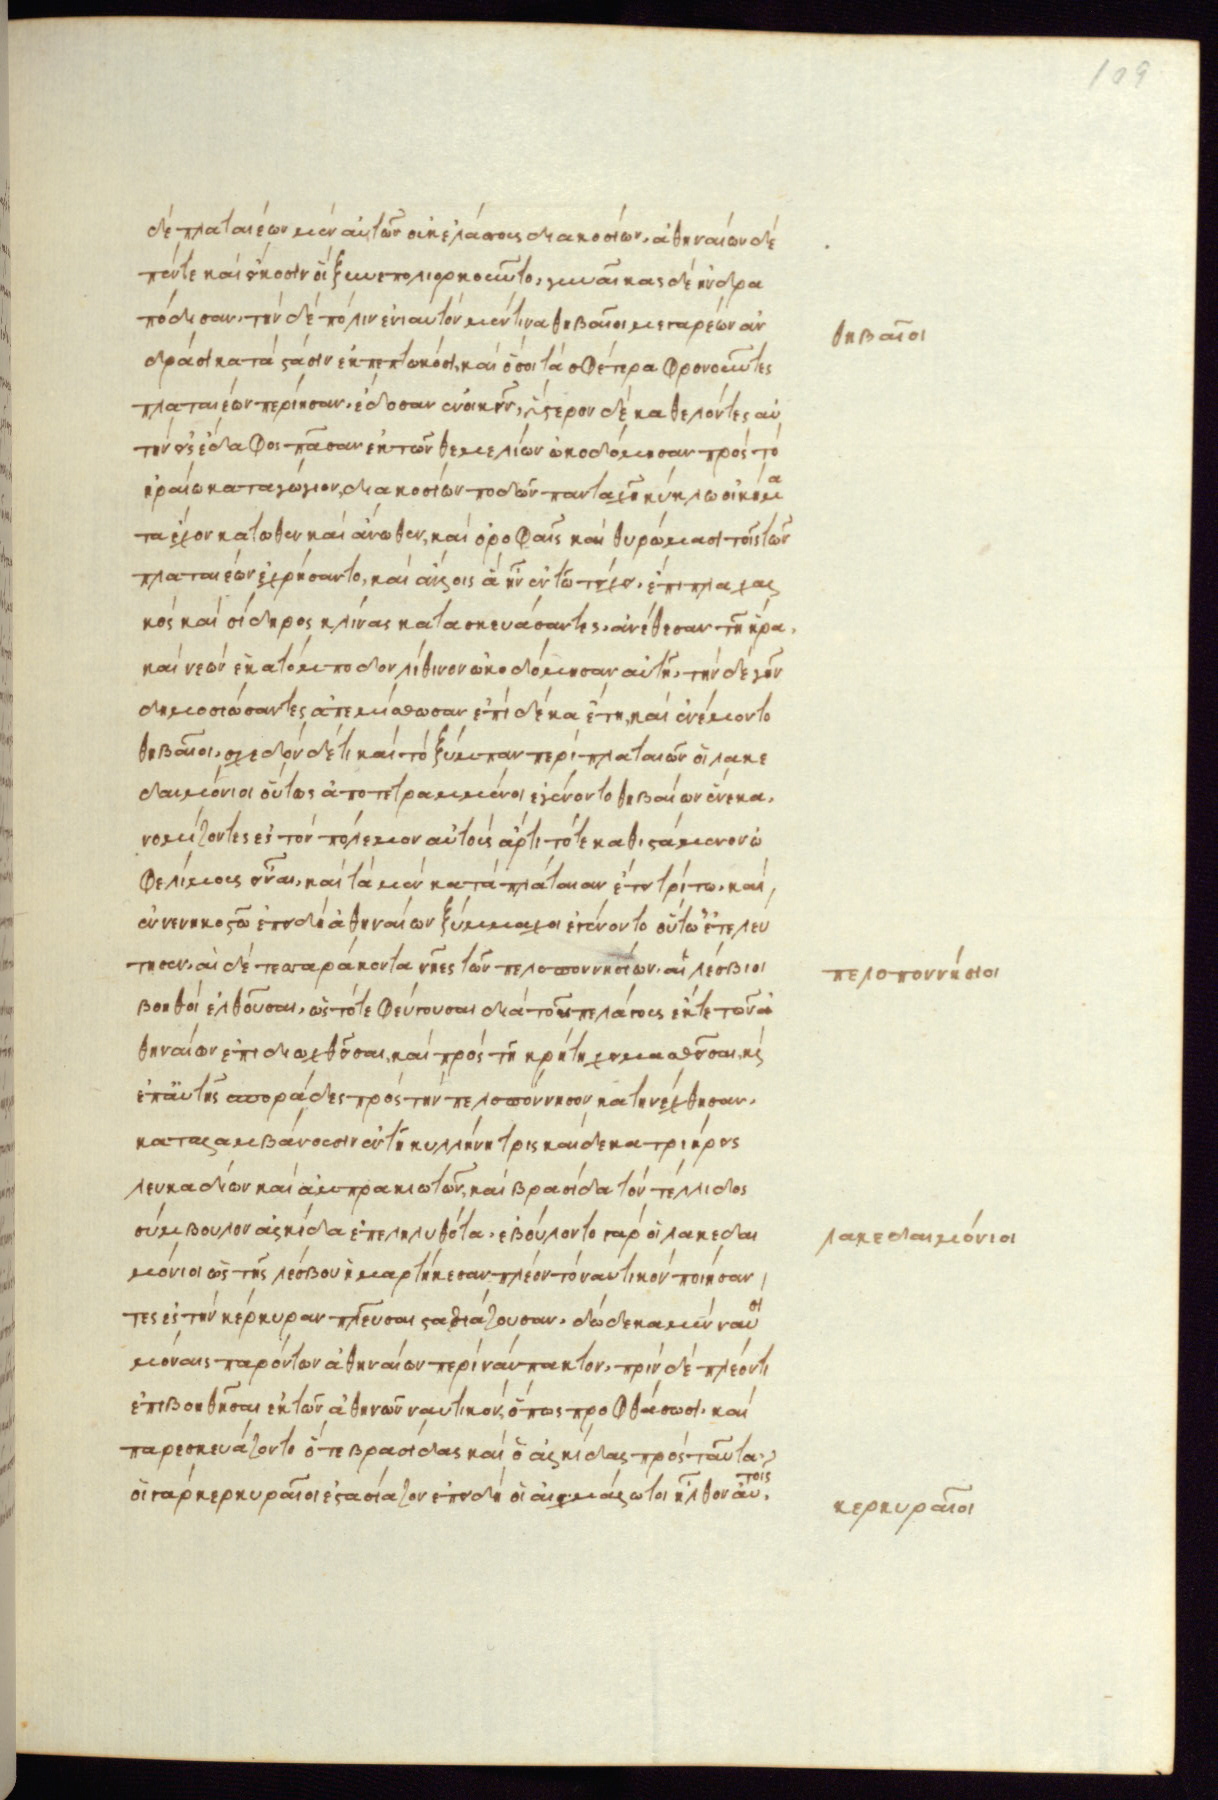 109
δὲ πλαταιέων μὲν αὐτῶν οὐκ ἐλάσσους διακοσίων, ἀθηναίων δὲ
πέντε καὶ εἴκοσιν οἳ ξυνεπολιορκοῦντο, γυναῖκας δὲ ἠνδρα
πόδισαν. τὴν δὲ πόλιν ἐνιαυτὸν μέν τινα θηβαῖοι μεγαρέων ἀν
θηβαῖοι
δράσι κατὰ στάσιν ἐκπεπτωκόσι, καὶ ὅσοι τὰ σφέτερα φρονοῦντες
πλαταιέων περιῆσαν, ἔδοσαν ἐνοικεῖν, ὕστερον δὲ καθελόντες αὐ
τὴν ἐς ἔδαφος πᾶσαν ἐκ τῶν θεμελίων ὠκοδόμησαν πρὸς τὸ
ἡραίω καταγώγιον, διακοσίων ποδῶν πανταχῆ κύκλω οἰκήμα
τα ἔχον κάτωθεν καὶ ἄνωθεν, καὶ ὀροφαῖς καὶ θυρώμασι τοῖς τῶν
πλαταιέων ἐχρήσαντο, καὶ ἄλλοις ἃ ἦν ἐν τῶ τείχει. ἔπιπλα χαλ
κὸς καὶ σίδηρος κλίνας κατασκευάσαντες, ἀνέθεσαν τῆ ἥρα,
καὶ νεὼν ἑκατόμποδον λίθινον ὠκοδόμησαν αὐτῆ, τὴν δὲ γῆν
δημοσιώσαντες ἀπεμίσθωσαν ἐπὶ δέκα ἔτη, καὶ ἐνέμοντο
θηβαῖοι, σχεδὸν δέ τι καὶ τὸ ξύμπαν περὶ πλαταιῶν οἱ λακε
δαιμόνιοι οὕτως ἀποτετραμμένοι ἐγένοντο θηβαίων ἕνεκα,
νομίζοντες ἐς τὸν πόλεμον αὐτοὺς ἄρτι τότε καθιστάμενον ὠ
φελίμους εἶναι, καὶ τὰ μὲν κατὰ πλάταιαν ἔτει τρίτω, καὶ
ἐνενηκοστῶ ἐπειδὴ ἀθηναίων ξύμμαχοι ἐγένοντο οὕτω ἐτελεύ
τησεν. αἱ δὲ τεσσαράκοντα νῆες τῶν πελοποννησίων, αἳ λέσβιοι
πελοποννήσιοι
βοηθοὶ ἐλθοῦσαι, ὡς τότε φεύγουσαι διὰ τοῦ πελάγους ἔκ τε τῶν ἀ
θηναίων ἐπιδιωχθεῖσαι, καὶ πρὸς τῆ κρήτη χειμασθεῖσαι, καὶ
ἐπ' αὐτῆς σποράδες πρὸς τὴν πελοπόννησον κατηνέχθησαν.
καταλαμβάνουσιν ἐν τῆ κυλλήνη τρις καίδεκα τριήρεις
λευκαδίων καὶ ἀμπρακιωτῶν, καὶ βρασίδα τὸν τέλλιδος
σύμβουλον ἀλκίδα ἐπεληλυθότα. ἐβούλοντο γὰρ οἱ λακεδαι
λακεδαιμόνιοι
μόνιοι ὡς τῆς λέσβου ἡμαρτήκεσαν πλέον τὸ ναυτικὸν ποιήσαν
τες ἐς τὴν κέρκυραν πλεῦσαι στασιάζουσαν. δώδεκα μὲν ναυσὶ
μόναις παρόντων ἀθηναίων περὶ ναύπακτον, πρὶν δὲ πλέον τι
ἐπιβοηθῆσαι ἐκ τῶν ἀθηνῶν ναυτικόν, ὅπως προφθάσωσι. καὶ
παρεσκευάζοντο ὅ τε βρασίδας καὶ ὁ ἀλκίδας πρὸς ταῦτα.
οἱ γὰρ κερκυραῖοι ἐστασίαζον ἐπειδὴ οἱ αἰχμάλωτοι ἦλθον αὐτοῖς.
κερκυραῖοι